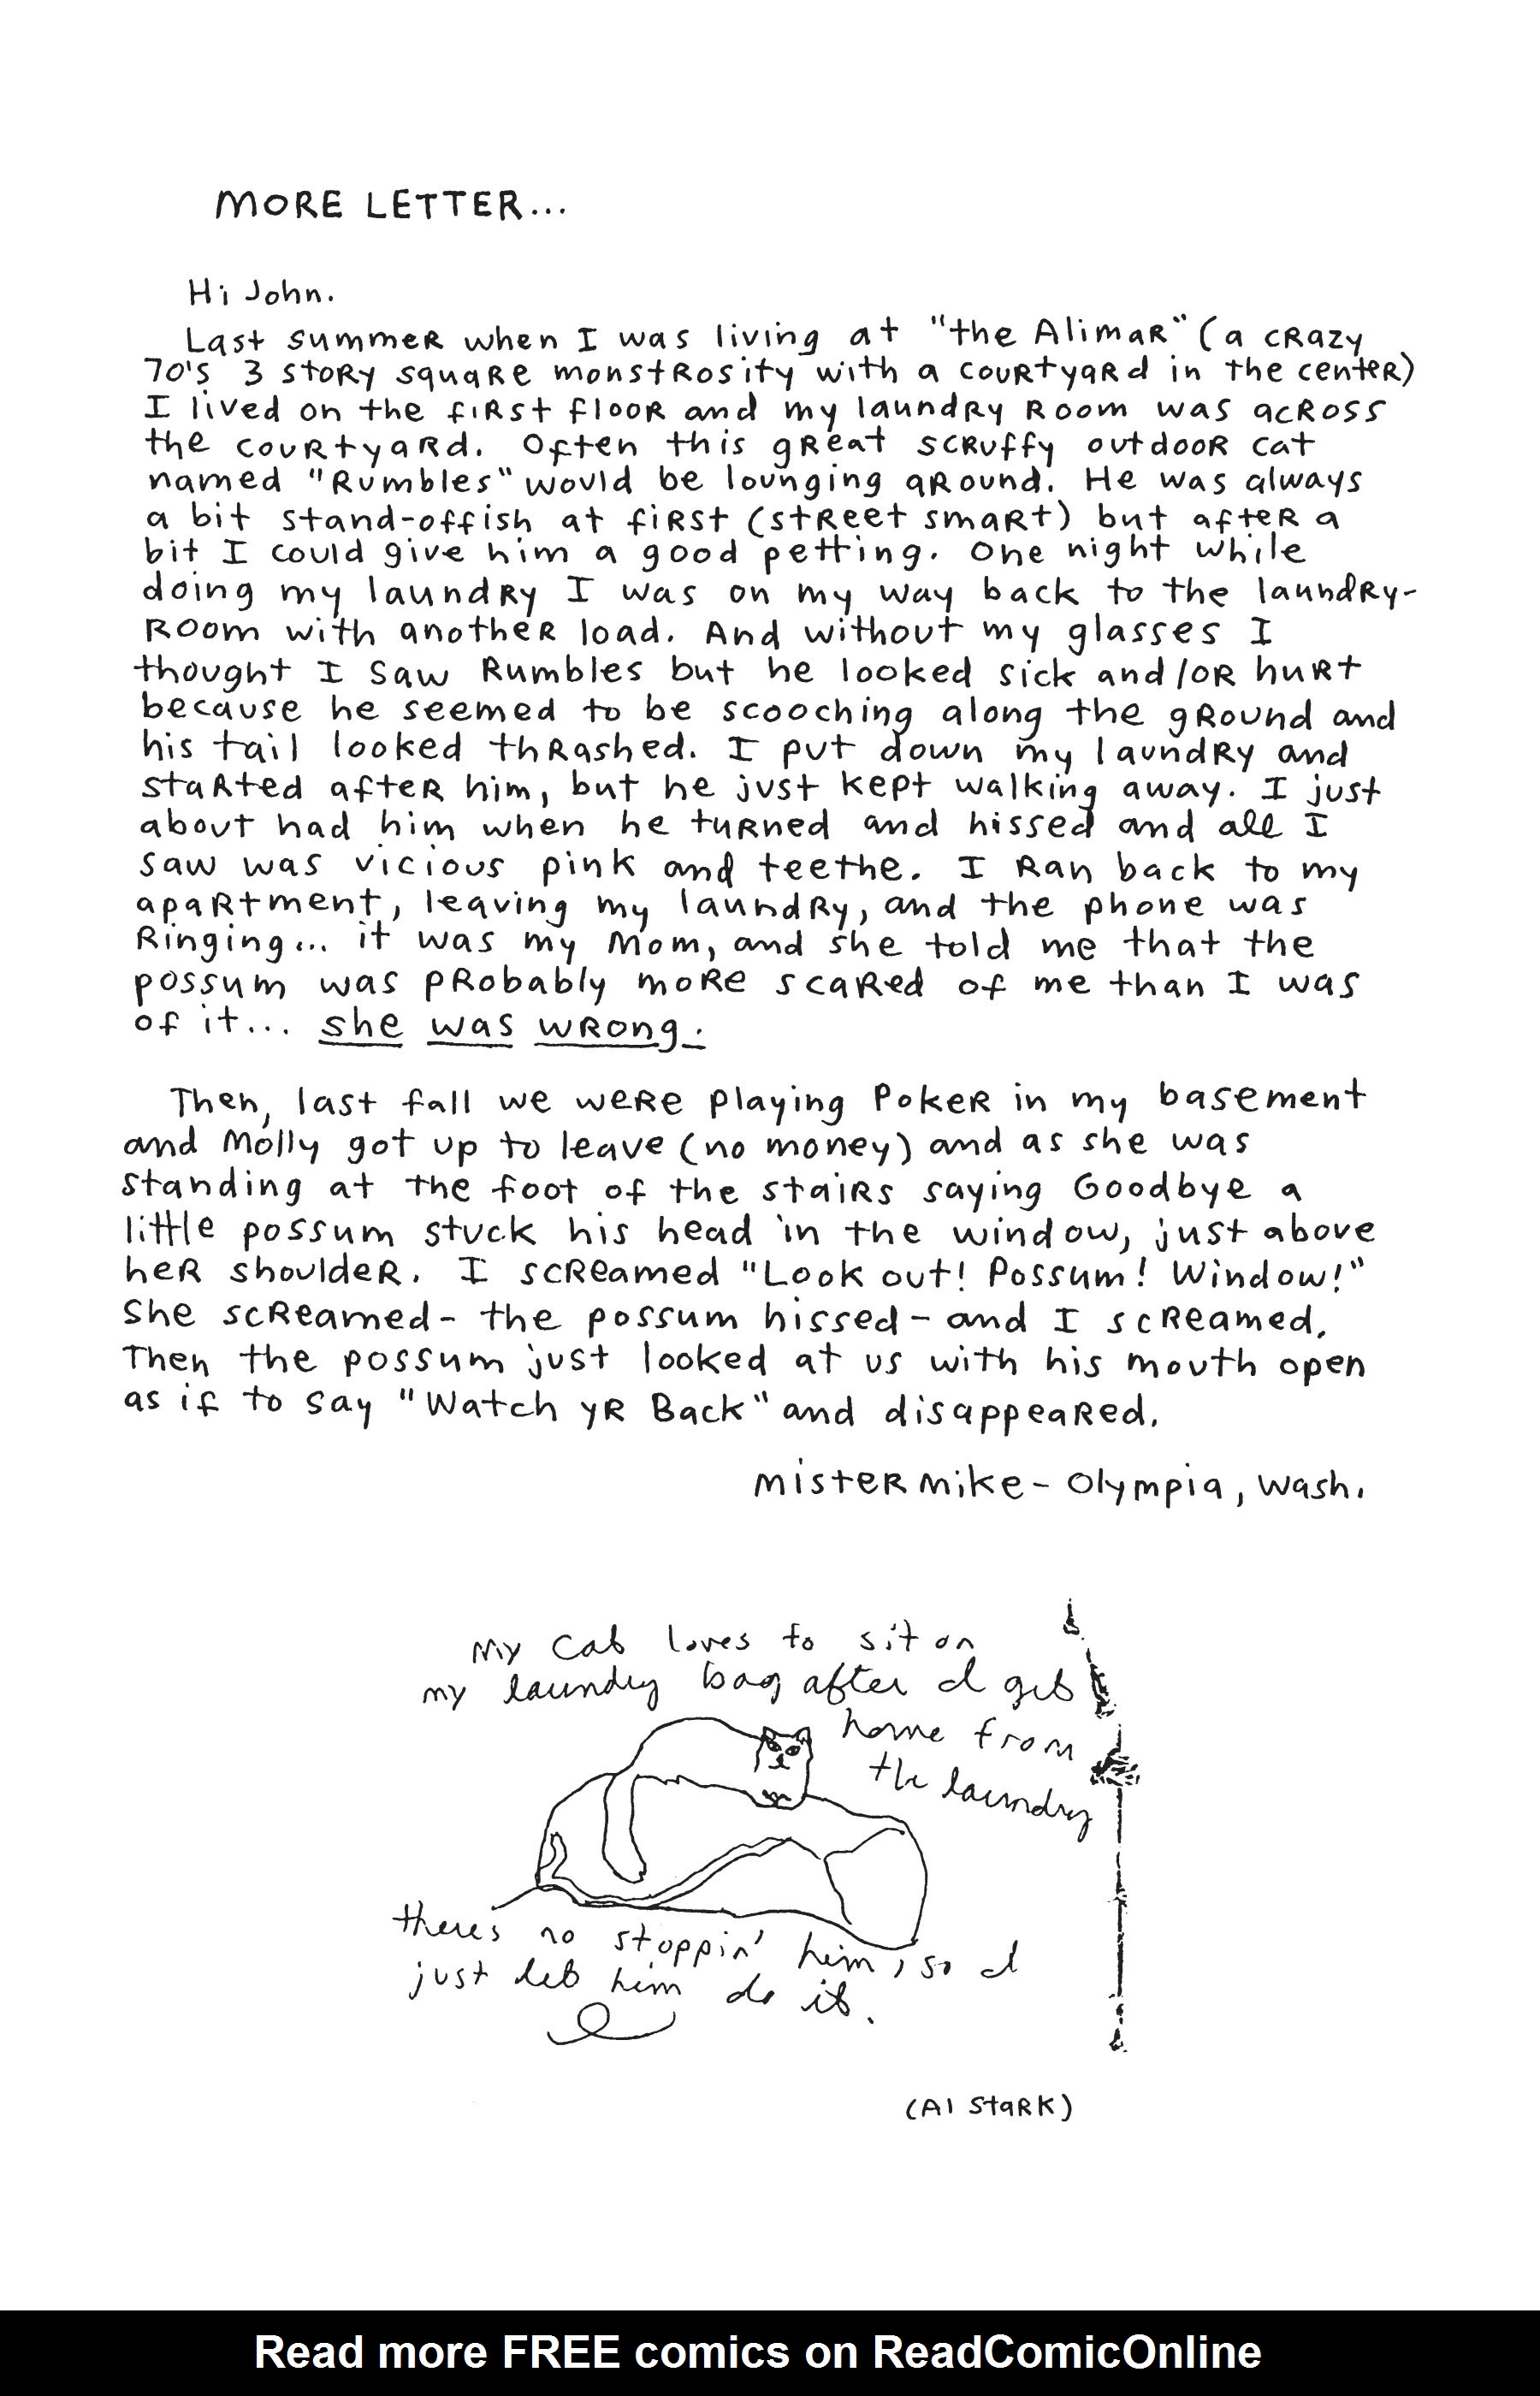 MORE LETTER...
Hi John.
Last summer when I was living at "the Alimar" (a crazy
70's 3 story square monstrosity with a courtyard in the center)
I lived on the first floor and my laundry room was across
the courtyard. Often this great scruffy outdoor cat
named "Rumbles" would be lounging around. He was always
a bit stand-offish at first (street smart) but after a
bit I could give him a good petting. One night while
doing my laundry I was on my way back to the laundry-
room with another load. And without my glasses I
thought I saw Rumbles but he looked sick and/or hurt
because he seemed to be scooching along the ground and
his tail looked thrashed. I put down my laundry and
started after him, but he just kept walking away. I just
about had him when he turned and hissed and all I
saw was vicious pink and teethe. I ran back to my
apartment, leaving my laundry, and the phone was
ringing... it was my Mom, and she told me that the
possum was probably more scared of me than I was
of it... she was wrong.
Then, last fall we were playing Poker in my basement
and Molly got up to leave (no money) and as she was
standing at the foot of the stairs saying Goodbye a
little possum stuck his head in the window, just above
her shoulder. I screamed "Look out! Possum! Window!"
She screamed - the possum hissed - and I screamed.
Then the possum just looked at us with his mouth open
as if to say "Watch yr Back" and disappeared.
Mister Mike - Olympia, Wash.
My cat loves to sit on
my laundry bag after I get
home from
the laundry
there's no stoppin' him, so I
just let him do it.
(Al Stark)
Read more FREE comics on ReadComicOnline